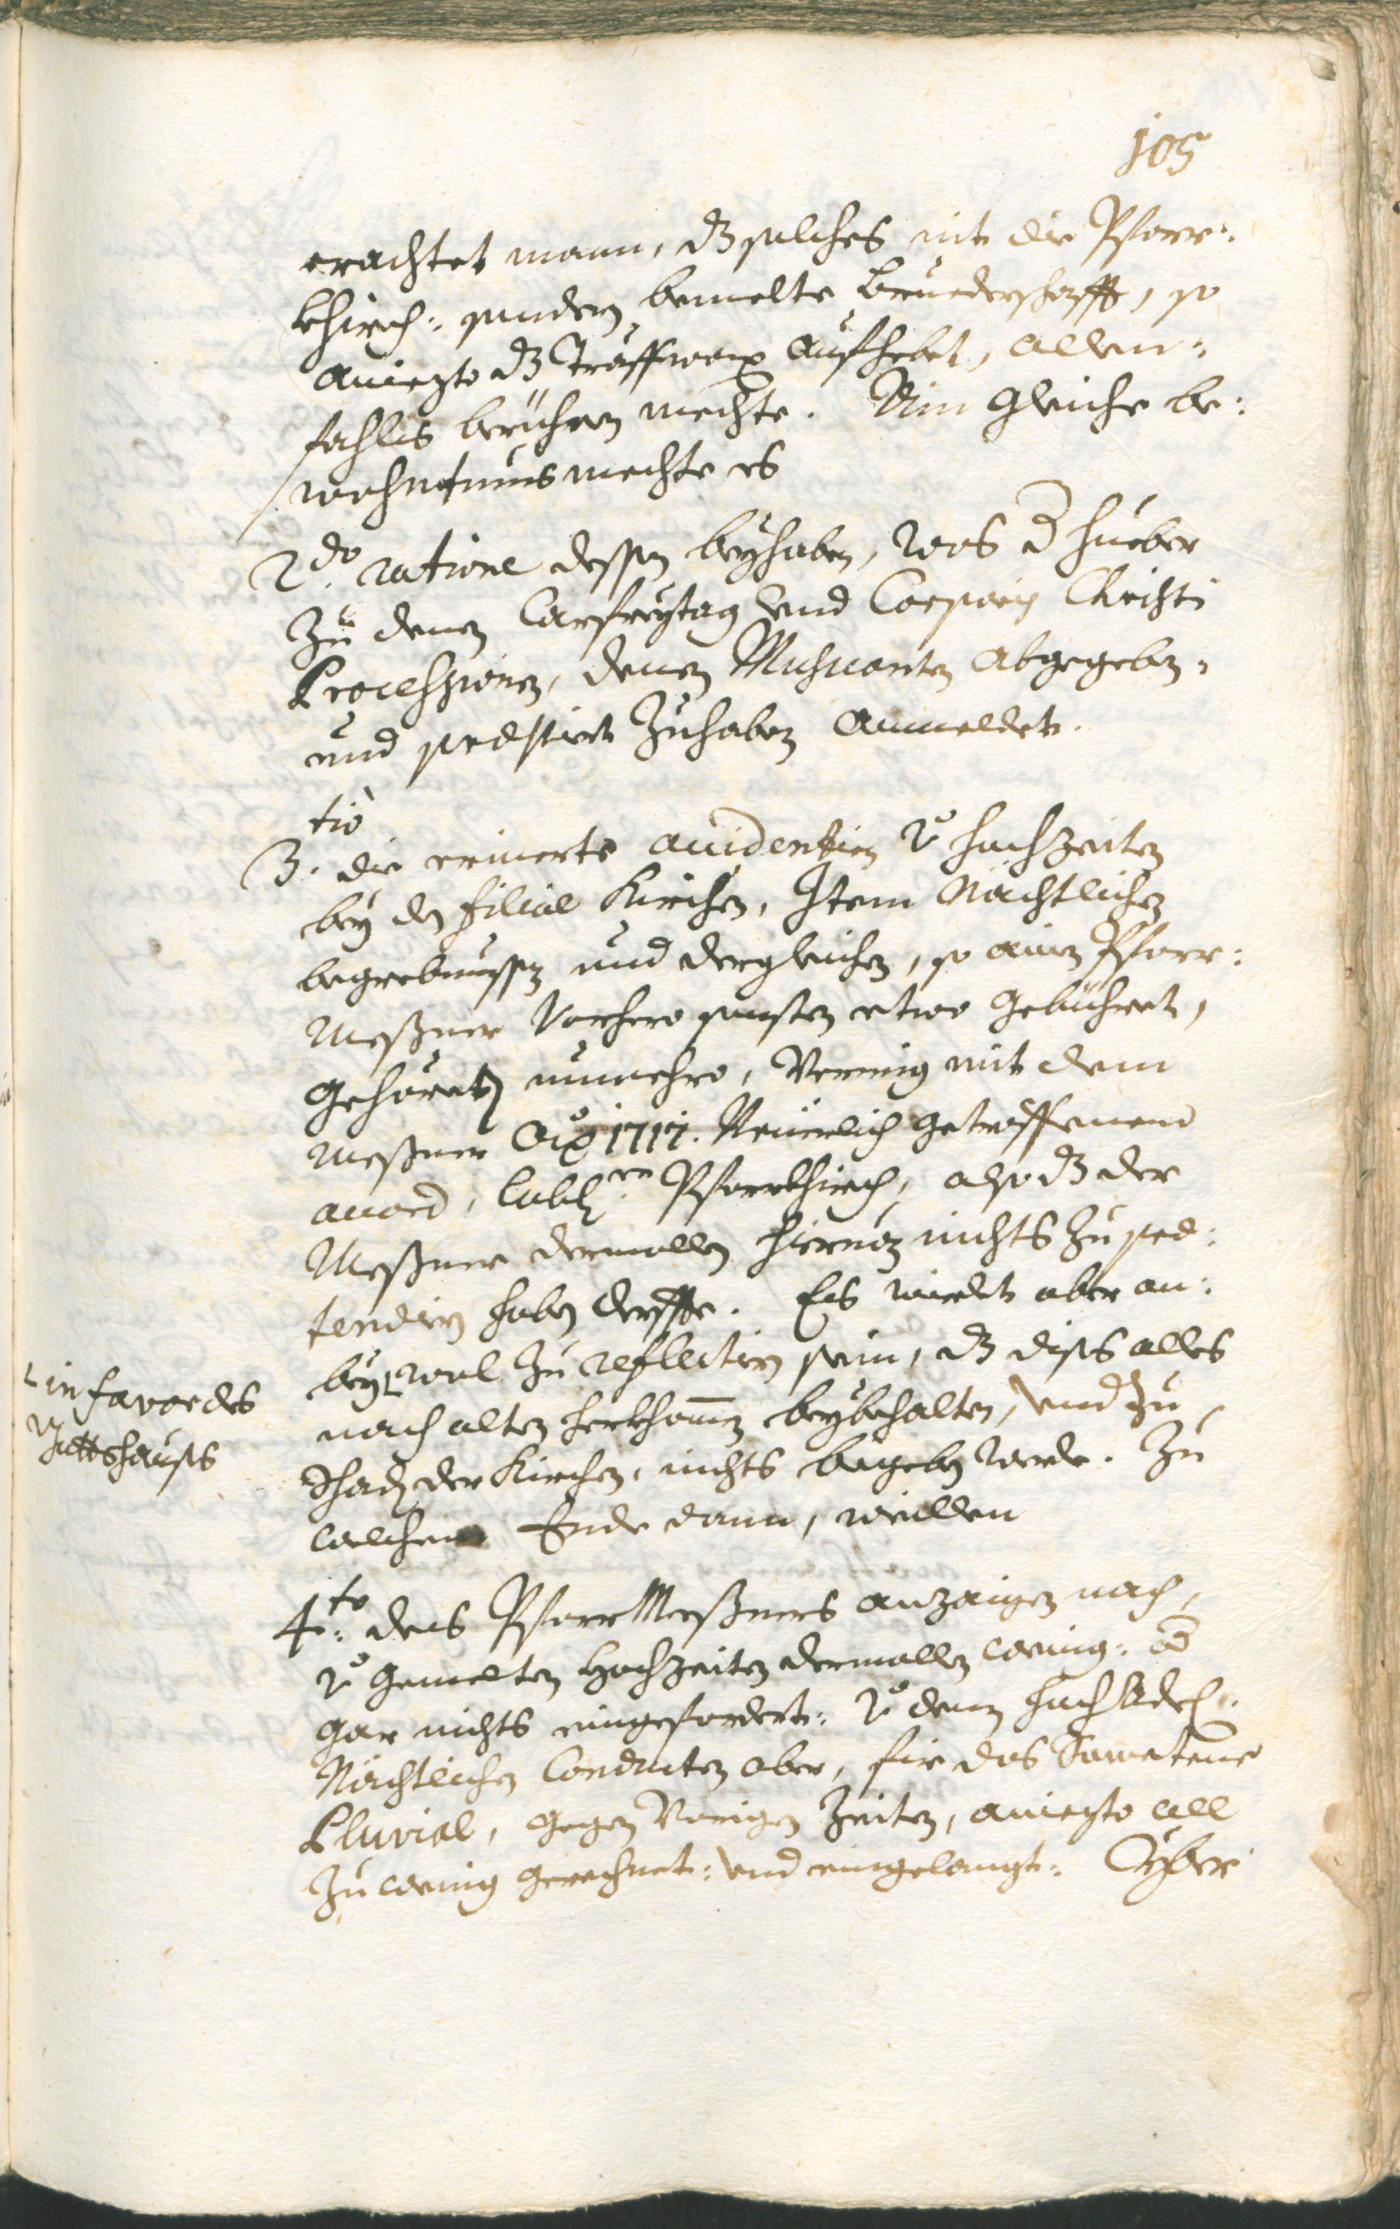 105
erachtet mann, dz solches nit die Pfarr¬
khirch: sondern bemelte Bruederschafft, so
aniezto dz Traffwax aufhebet, allen¬
fahls berüehren mechte. Ain gleiche be¬
wohntnus mechte es
2do. ratione dessen beyhaben, was d Hueber
zu denen Carfreytag vnd Corporis Christi
Processionen, denen Musicanten abgegeben,
und prestiert zuhaben anmeldet.
3tio. die erinerte accidentien v hochzeiten
bey den filial Kirchen, Item Nächtlichen
begrebnussen und dergleichen, so ainen Pfarr¬
Messner vorhero sonsten etwo gebühret,
gehöreten nunmehro, vermög mit dem
Messner Ao 1717. Neüerlich getroffenem
accord, Lobl:en Pfarrkhirch, also dz der
Messner dermallen hieruon nichts zu pre¬
tendirn haben derffte. Es wirdt aber an¬
bey wol zu reflectirn sein, dz dises alles
nach alten herkhomen beybehalten, vnd zu
Schaden der Kirchen, nichts begeben werde. Zu
welchem Ende dann, weillen
in favor des
Gottshauses
4to: des PfarrMessners anzaigen nach,
v gemelten Hochzeiten dermallen wenig: od
gar nichts eingefordert: v denen hochAdel:
Nächtlichen Conducten aber, für das Sametene
Pluvial, gegen vorigen Zeiten, aniezto all
zu wenig gerechnet: vnd eingelangt: Ueber